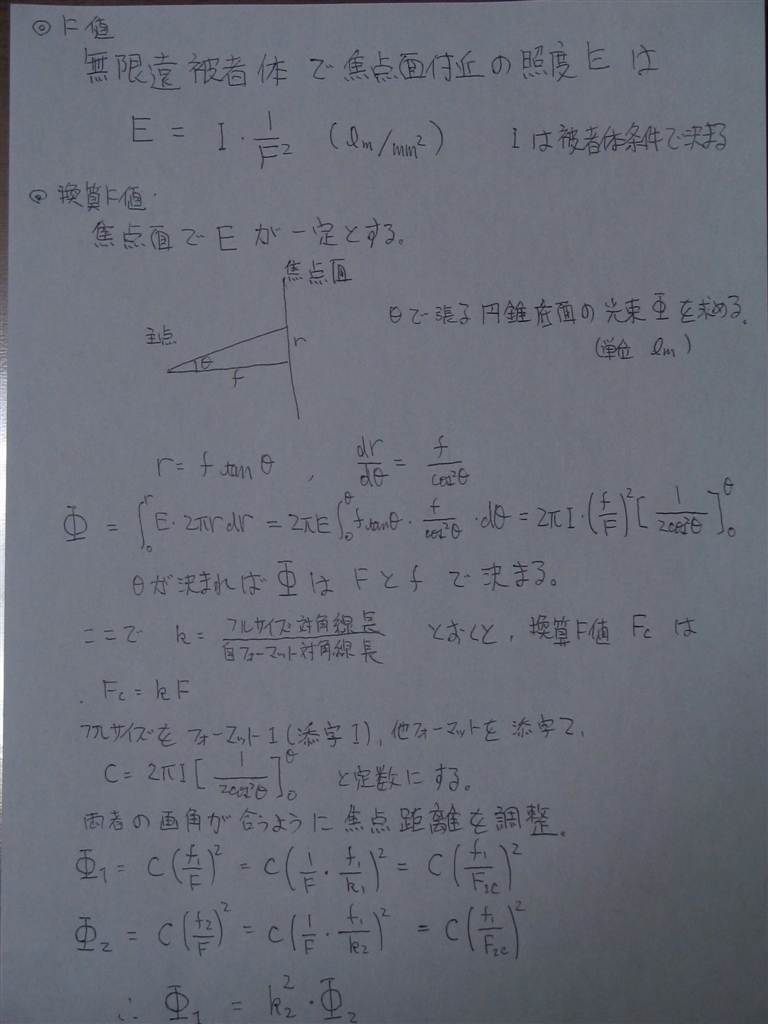 ◎ F値
無限遠被者体で焦点面付近の照度Eは
E = I・1/F² (lm/mm²) Iは被者体条件で決まる
◎ 換算F値.
焦点面でEが一定とする。
焦点面
主点 θ f r
θで張る円錐底面の光束Φを求める。
(単位 lm)
r = f tanθ , dr/dθ = f/cos²θ
Φ = ∫₀^r E・2πr dr = 2πE∫₀^θ f tanθ・f/cos²θ・dθ = 2πI・(f/F)²[1/2cos²θ]₀^θ
θが決まればΦはFとfで決まる。
ここで k = フルサイズ対角線長/自フォーマット対角線長 とおくと, 換算F値 Fcは
. Fc = kF
フルサイズをフォーマット1(添字1), 他フォーマットを添字2,
C = 2πI[1/2cos²θ]₀^θ と定数にする。
両者の画角が合うように焦点距離を調整。
Φ₁ = C(f₁/F)² = C(1/F・f₁/k₁)² = C(f₁/F₁c)²
Φ₂ = C(f₂/F)² = C(1/F・f₁/k₂)² = C(f₁/F₂c)²
∴ Φ₁ = k₂²・Φ₂